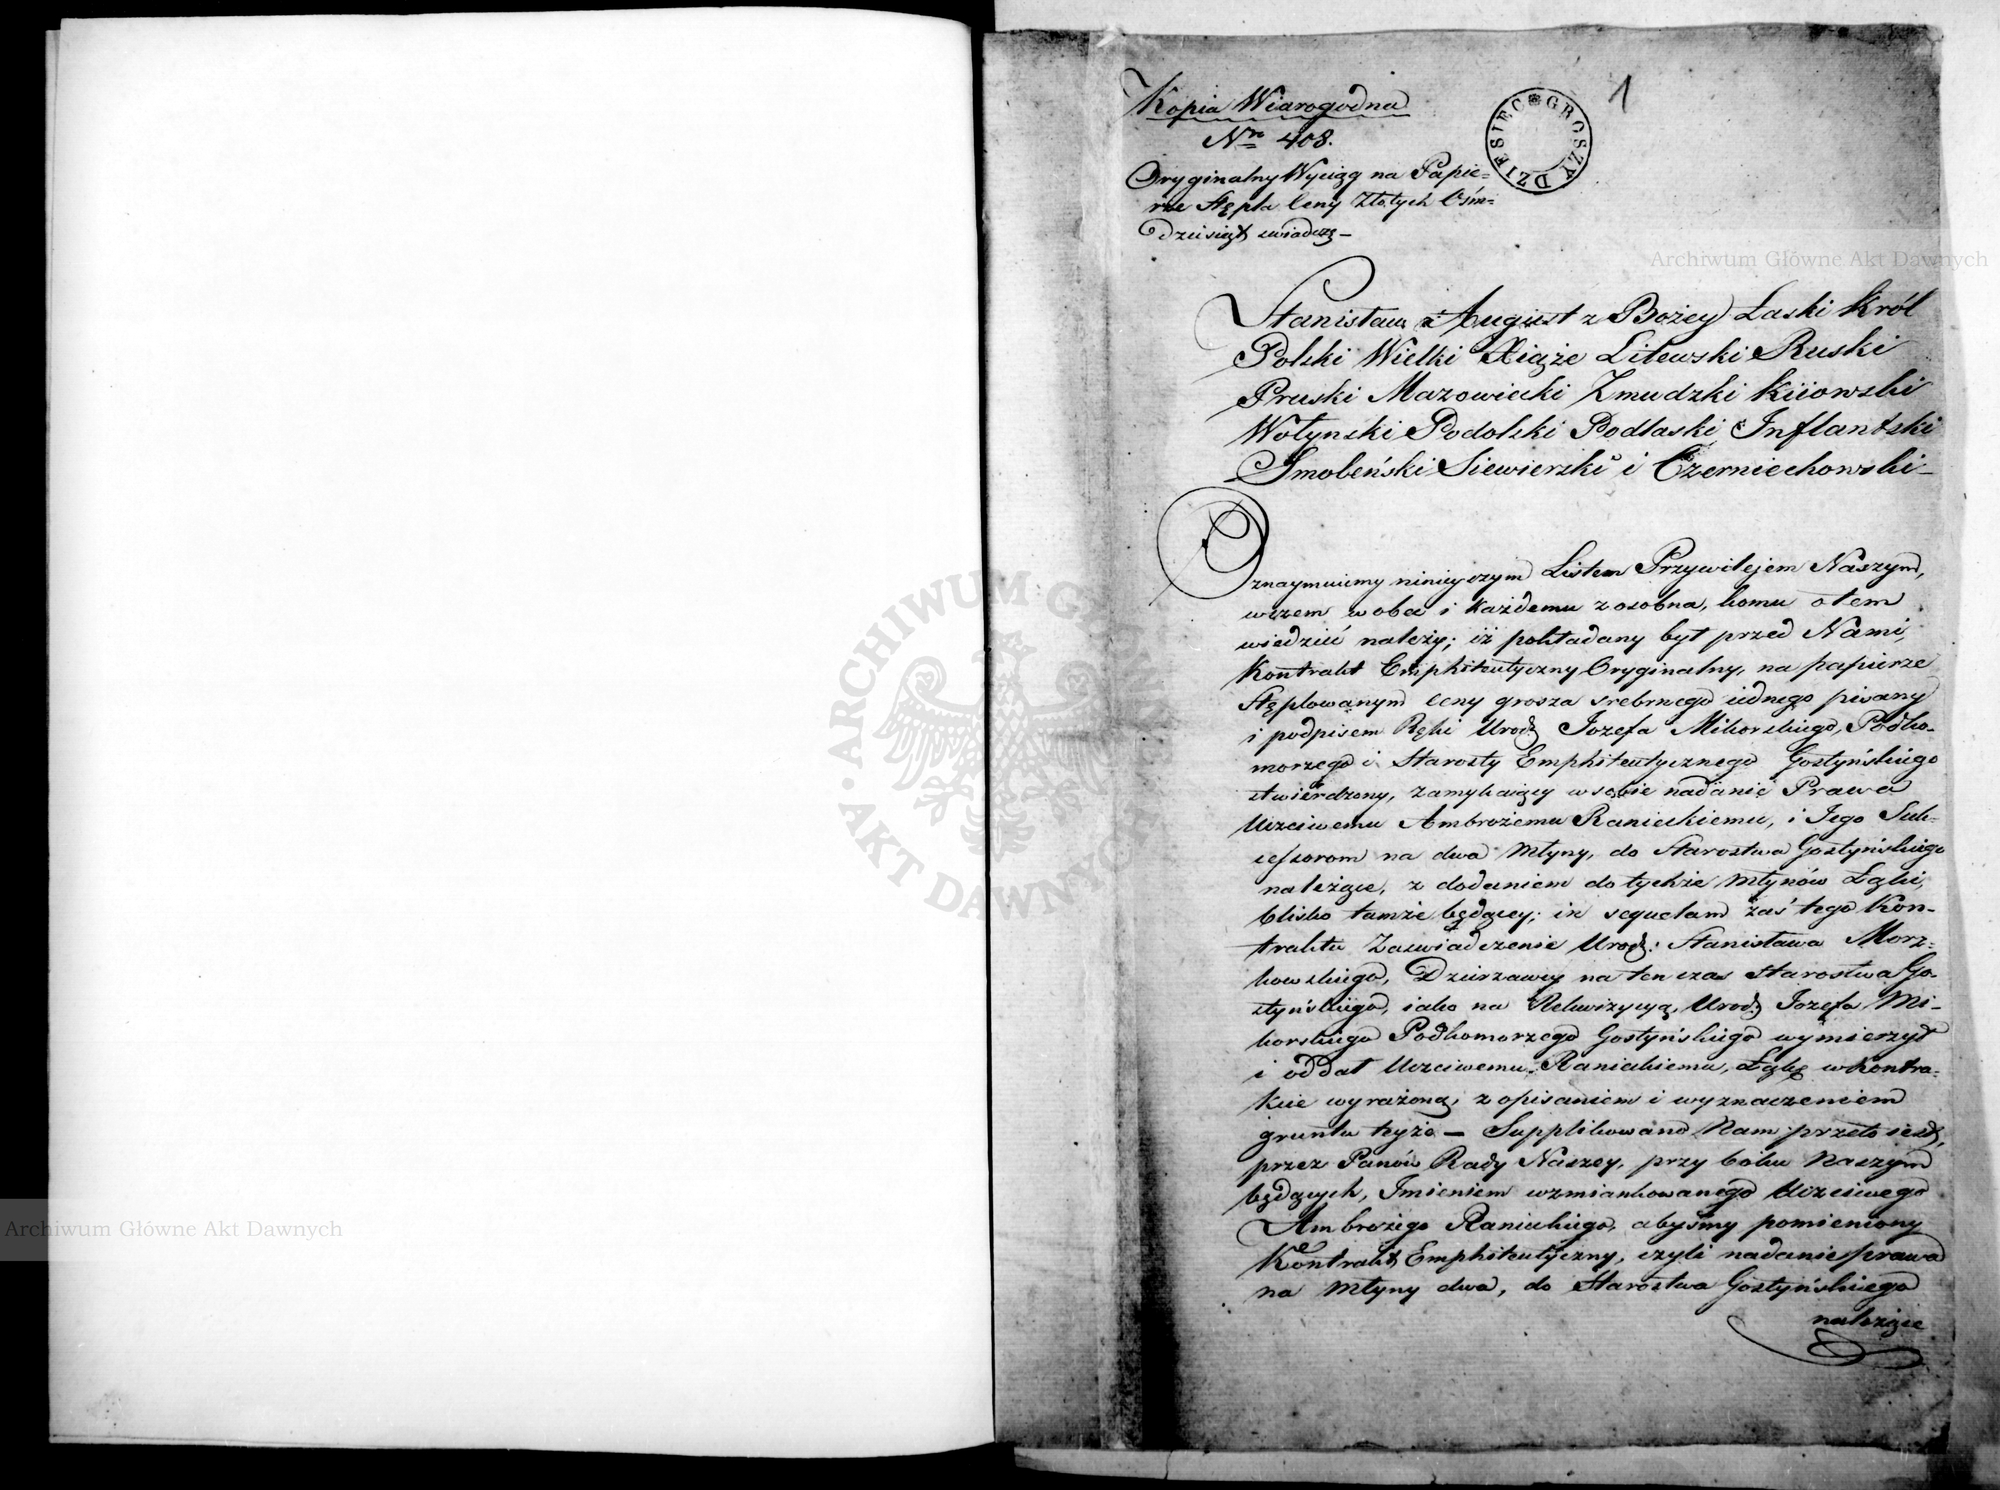 Kopia Wiarogodna
Nro 408.
Oryginalny Wyciąg na Papie=
rze Stępla Ceny Złotych Ośm=
dziesiąt swiadczę —
DZIESIĘC GROSZY
1
Archiwum Główne Akt Dawnych
Stanisław August z Bożey Łaski Król
Polski Wielki Xiąże Litewski Ruski
Pruski Mazowiecki Zmudzki Kiiowski
Wołynski Podolski Podlaski Inflantski
Smoleński Siewierski i Czerniechowski —
Oznaymuiemy ninieyszym Listem Przywilejem Naszym,
wszem wobec i każdemu zosobna, komu otem
wiedzieć należy; iż pokładany był przed Nami,
Kontrakt Emphiteutyczny Oryginalny, na papierze
stęplowanym ceny grosza srebrnego iednego pisany
i podpisem Ręki Urodz Jozefa Mikorskiego, Podko-
morzego i Starosty Emphiteutycznego Gostyńskiego
stwierdzony, zamykaiący w sobie nadanie Prawa
Uczciwemu Ambrożemu Ranieckiemu, i Jego Suk-
cessorom na dwa Młyny, do Starostwa Gostyńskiego
należące, z dodaniem do tychże Młynów Łąki,
blisko tamże będącey; in sequelam zaś tego Kon-
traktu Zaswiadczenie Urodz: Stanisława Morz-
kowskiego, Dzierzawcy na ten czas Starostwa Go-
styńskiego, iako na Rekwizycyą, Urodz Jozefa Mi-
korskiego Podkomorzego Gostyńskiego wymierzył
i oddał Uczciwemu Ranieckiemu, Łąkę w Kontra-
kcie wyrażoną, z opisaniem i wyznaczeniem
gruntu teyże — Supplikowano Nam przeto iest,
przez Panów Rady Naszey, przy boku Naszym
będących, Imieniem wzmiankowanego Uczciwego
Ambrożego Ranieckiego, abyśmy pomieniony
Kontrakt Emphiteutyczny, czyli nadanie prawa
na Młyny dwa, do Starostwa Gostyńskiego
należące
ARCHIWUM GŁÓWNE AKT DAWNYCH
Archiwum Główne Akt Dawnych